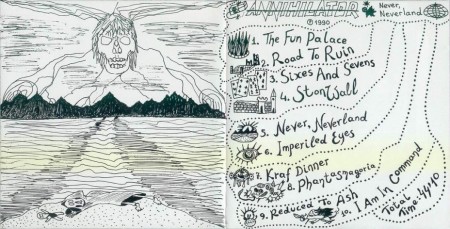 ANNIHILATOR
© 1990
Never,
Neverland
1. The Fun Palace
2. Road To Ruin
3. Sixes And Sevens
4. Stonewall
5. Never, Neverland
6. Imperiled Eyes
7. Kraf Dinner
8. Phantasmagoria
9. Reduced To Ash
10. I Am In Command
Total
Time-44:10